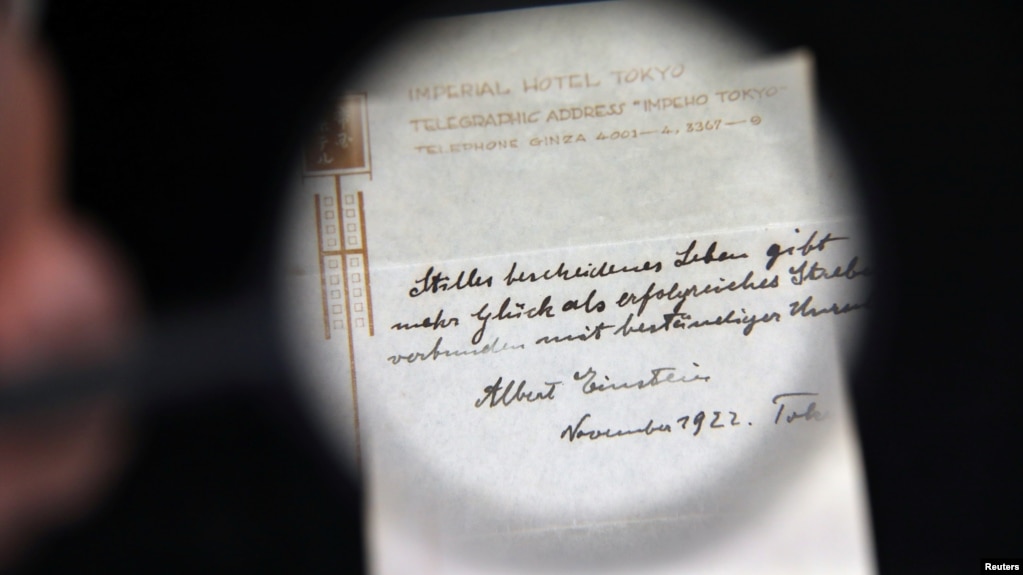 IMPERIAL HOTEL TOKYO
TELEGRAPHIC ADDRESS "IMPEHO TOKYO"
TELEPHONE GINZA 4001—4, 8367—9
テル
Stilles bescheidenes Leben gibt
mehr Glück als erfolgreiches Streb
verbunden mit beständiger Unru
Albert Einstein
November 1922. Tok
Reuters